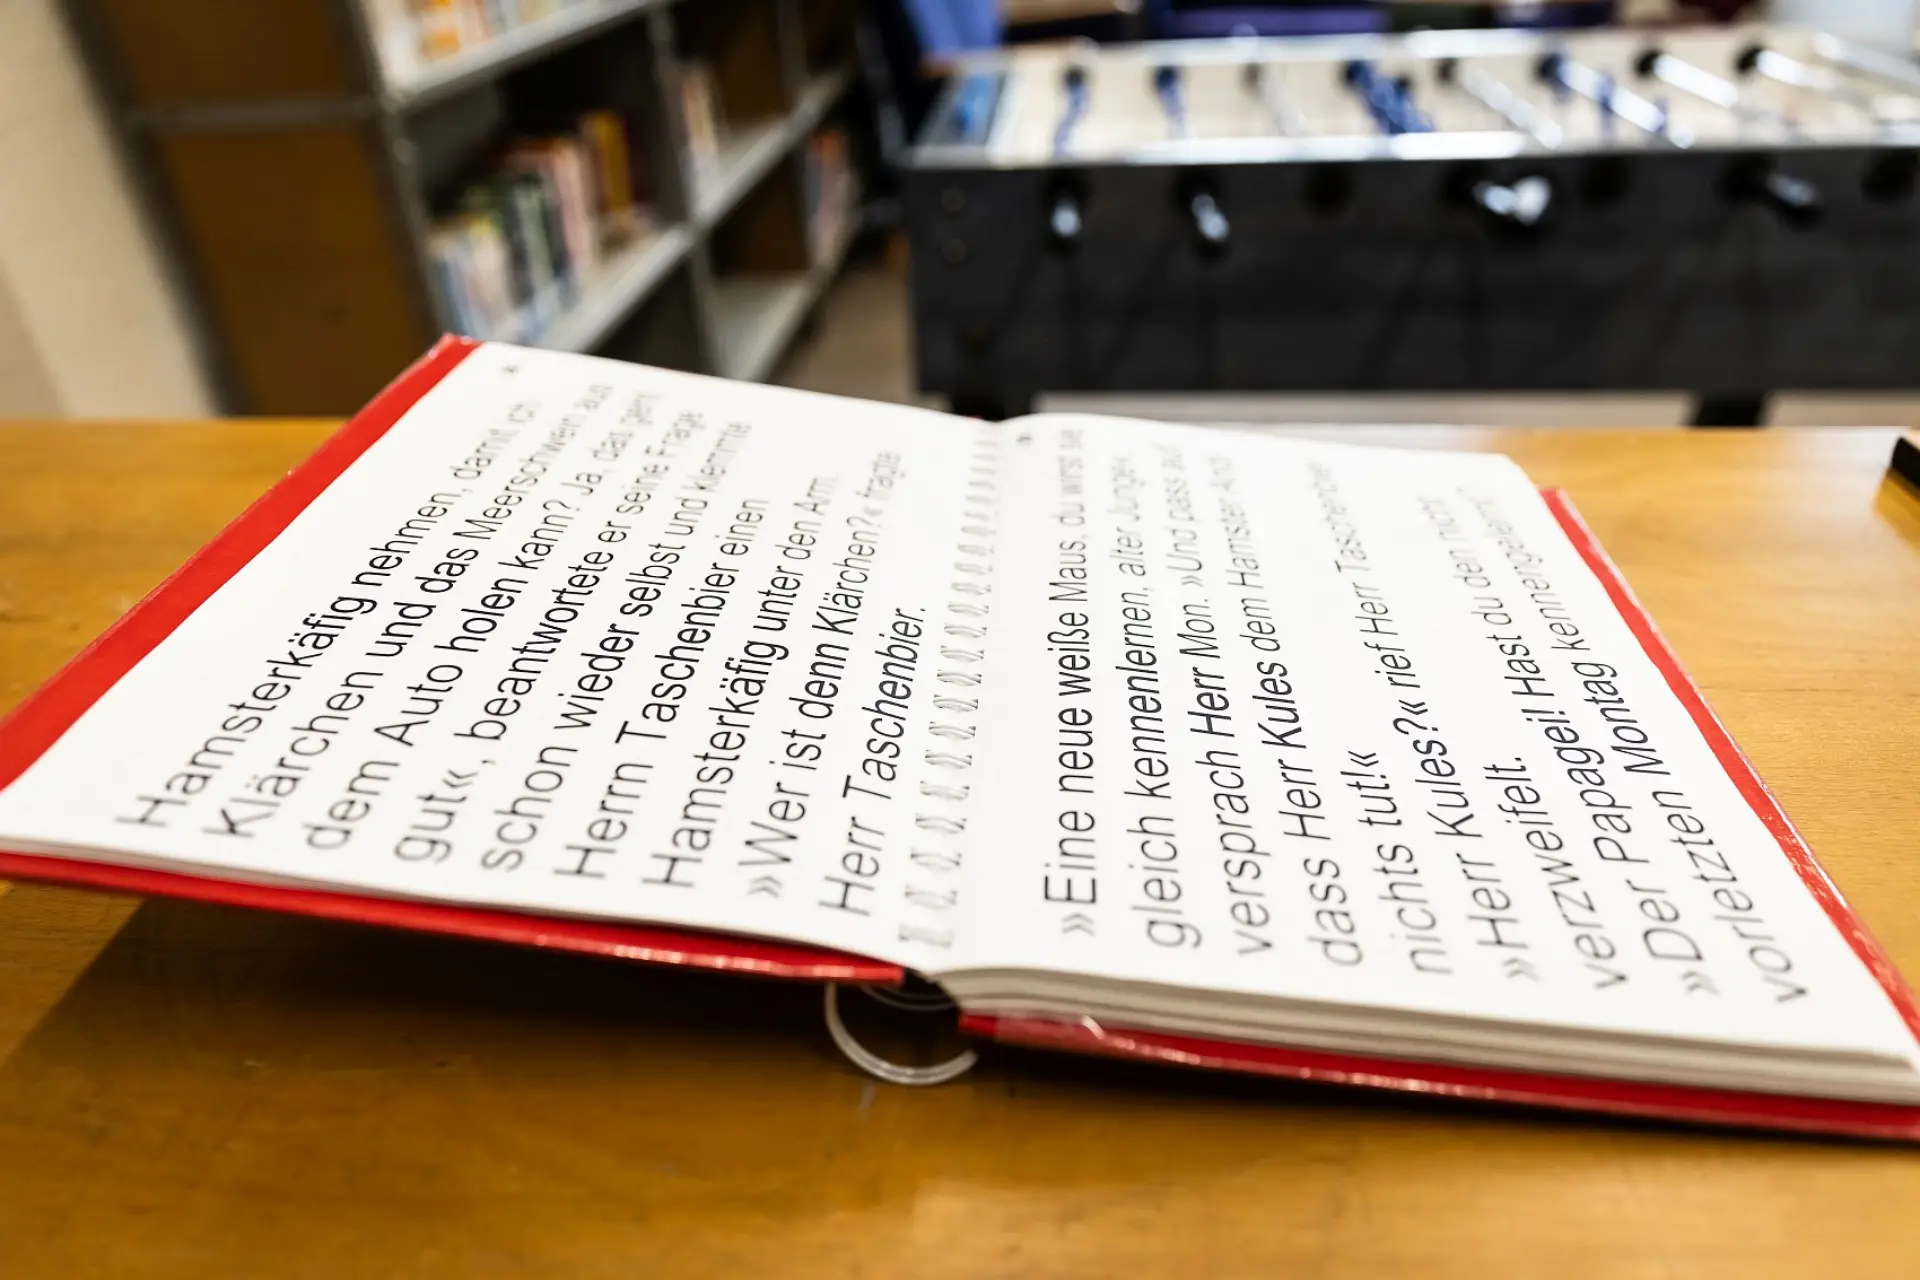 Hamsterkäfig nehmen, damit ich
Klärchen und das Meerschwein aus
dem Auto holen kann? Ja, das geht
gut«, beantwortete er seine Frage
schon wieder selbst und klemmte
Herrn Taschenbier einen
Hamsterkäfig unter den Arm.
»Wer ist denn Klärchen?« fragte
Herr Taschenbier.
»Eine neue weiße Maus, du wirst sie
gleich kennenlernen, alter Junge«,
versprach Herr Mon. »Und pass auf,
dass Herr Kules dem Hamster Anton
nichts tut!«
»Herr Kules?« rief Herr Taschenbier
verzweifelt. »Hast du den nicht
»Der Papagei! Hast du den nicht
vorletzten Montag kennengelernt?